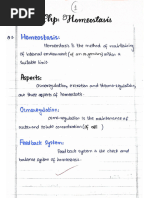 1
Chp: 15 Homeostasis
Homeostasis:
Homeostasis is the method of maintaining
of internal environment (of an organism) within a
suitable limit.
Aspects:
Osmoregulation, excretion and thermo-regulation,
are three aspects of homeostasis.
Osmoregulation:
Osmo-regulation is the maintenance of
water and solute concentration (of cell)
Feedback System:
Feedback system is the check and
balance system of homeostasis.